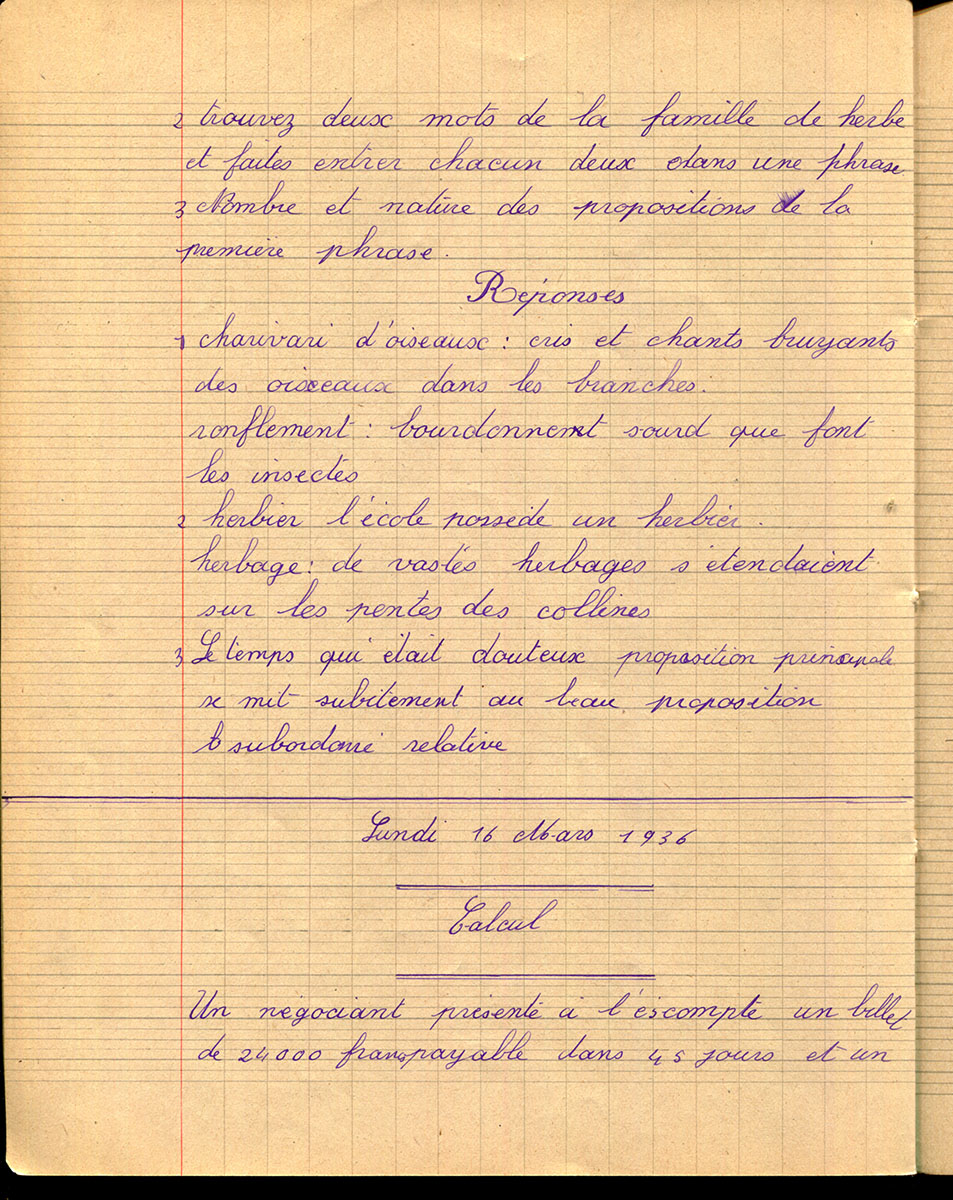 2 trouvez deux mots de la famille de herbe
et faites entrer chacun deux dans une phrase.
3 Nombre et nature des propositions de la
première phrase.
Réponses
1 charivari d'oiseaux : cris et chants bruyants
des oiseaux dans les branches.
ronflement : bourdonnemt sourd que font
les insectes
2 herbier l'école possède un herbier.
herbage : de vastes herbages s'étendaient
sur les pentes des collines
3 Le temps qui était douteux proposition principale
se mit subitement au beau proposition
subordonné relative
Lundi 16 Mars 1936
Calcul
Un négociant présente à l'éscompte un billet
de 24000 francs payable dans 45 jours et un